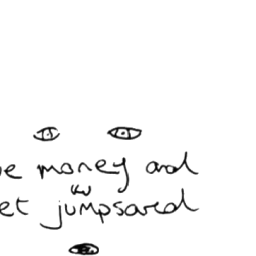 ve money and
et jumpsared